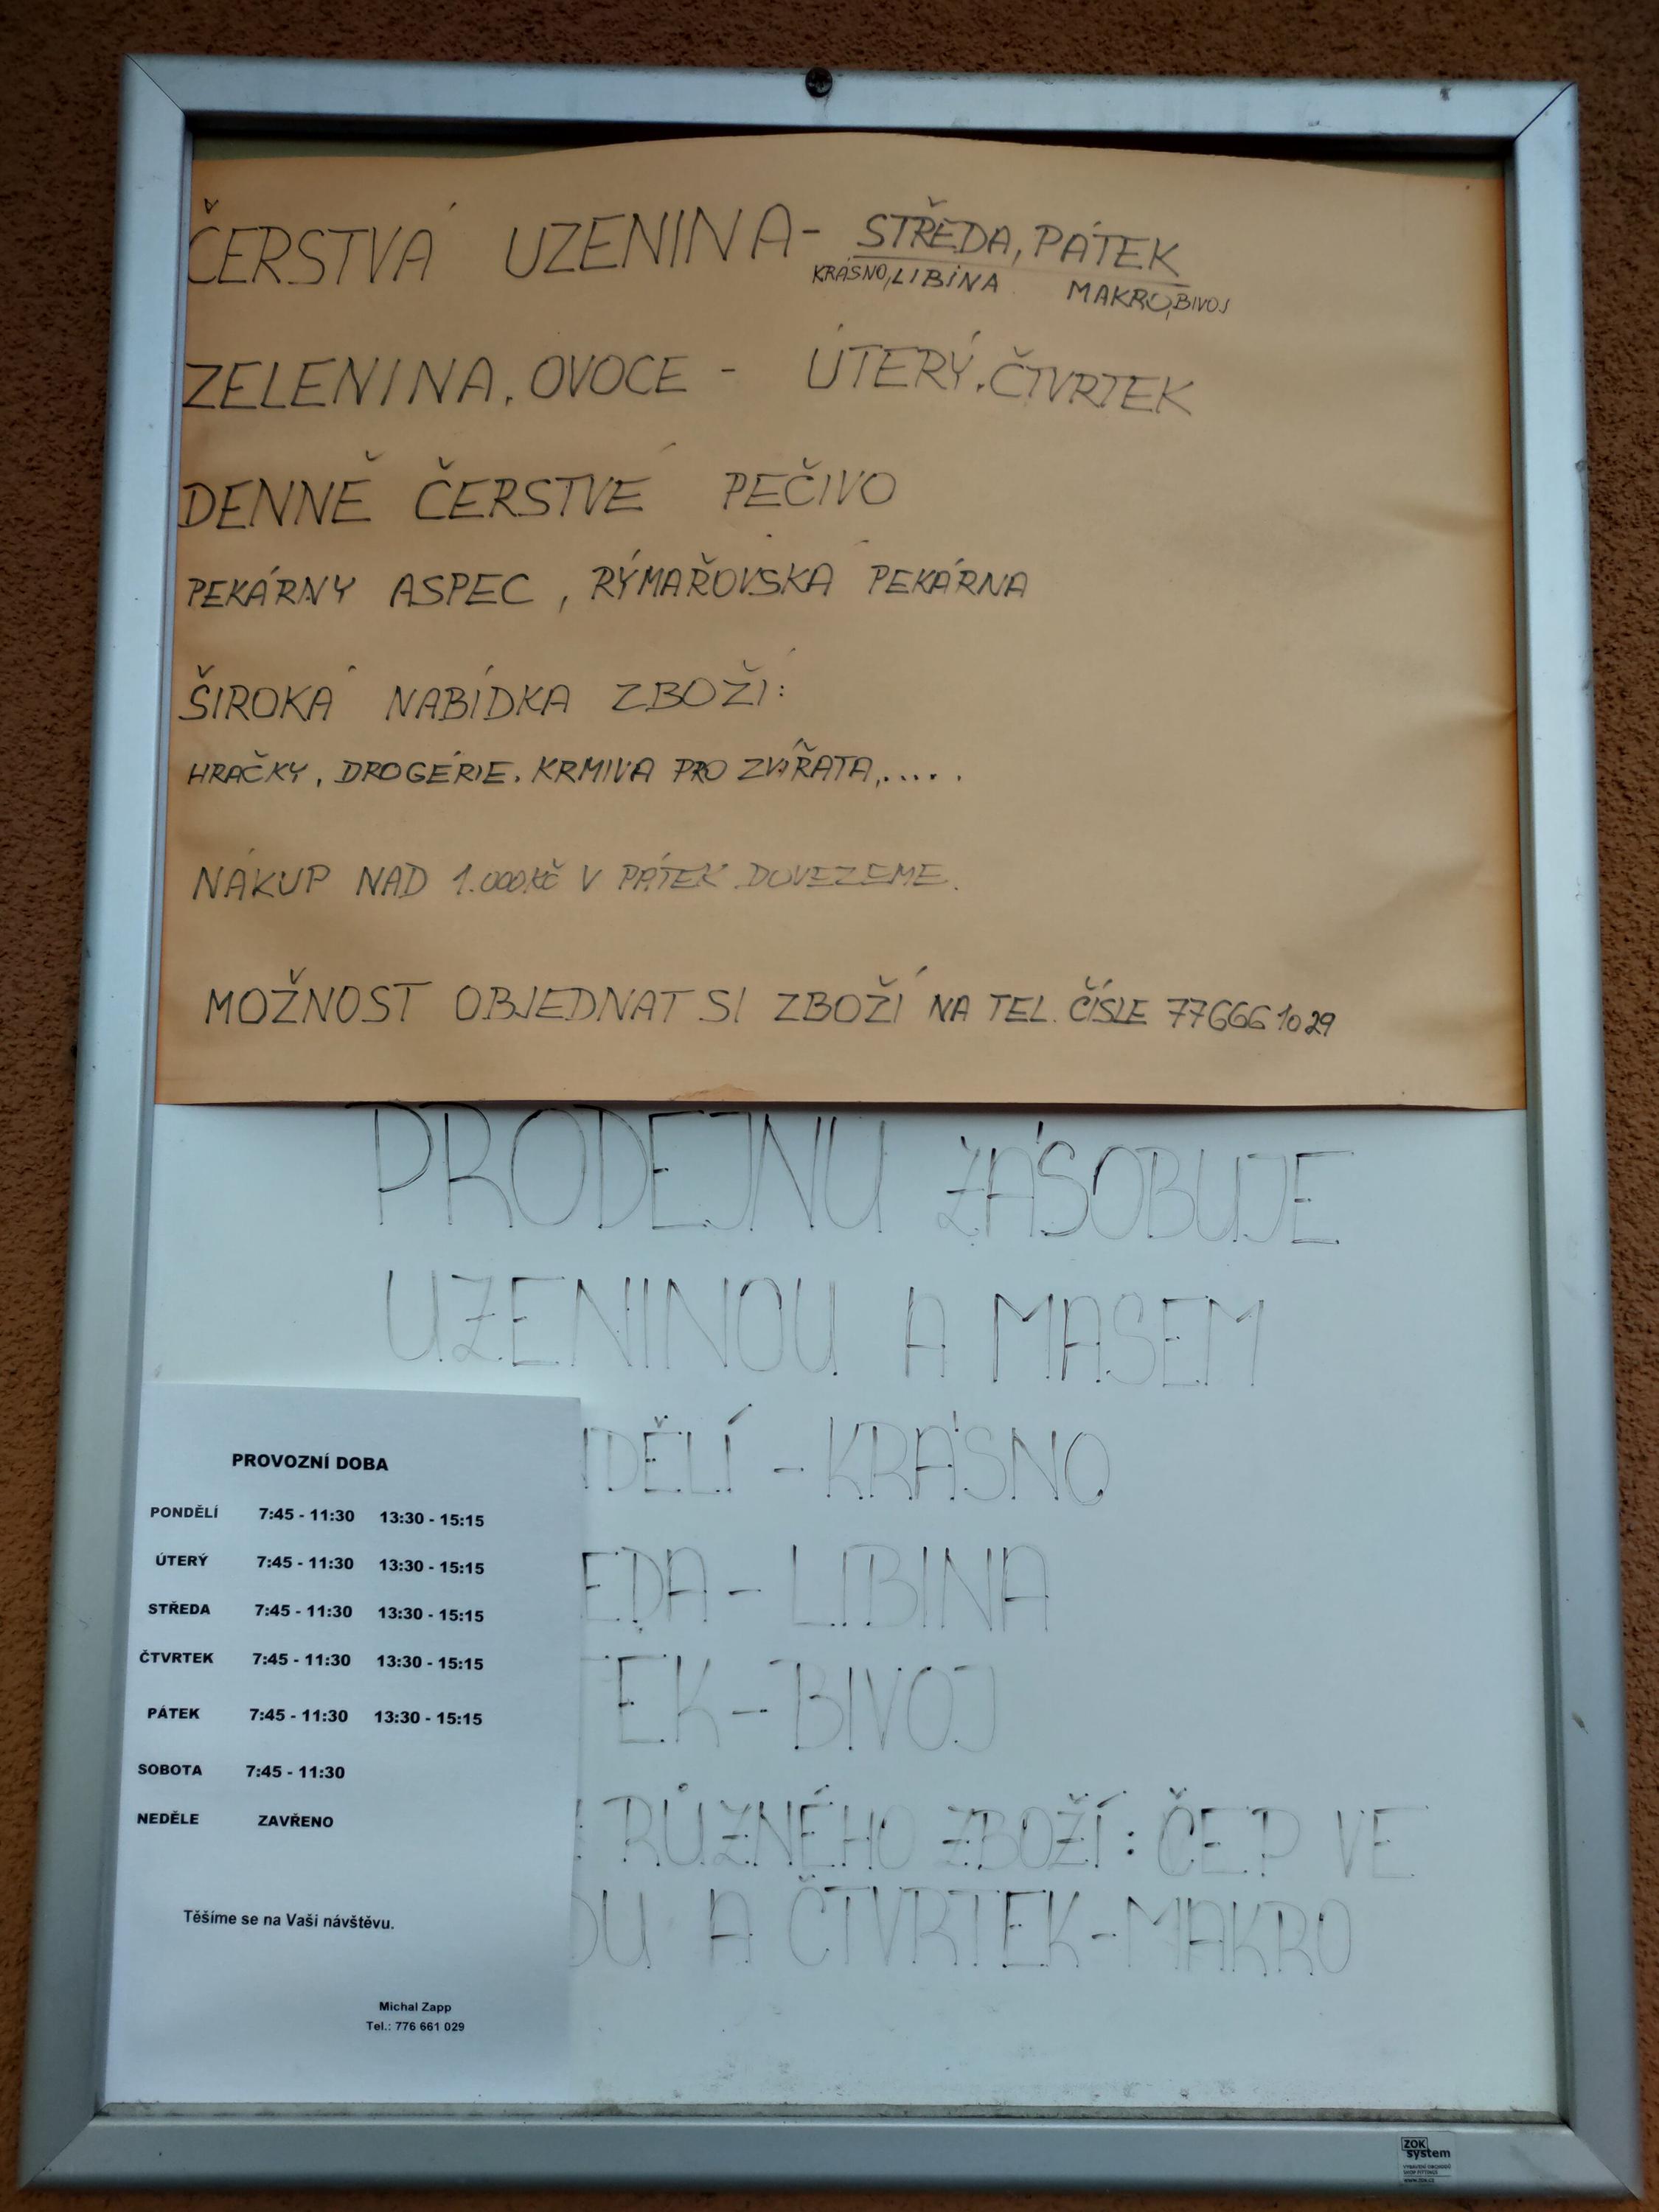 ČERSTVÁ UZENINA - STŘEDA, PÁTEK
KRÁSNO, LIBINA MAKRO, BIVOJ
ZELENINA, OVOCE - ÚTERÝ, ČTVRTEK
DENNĚ ČERSTVÉ PEČIVO
PEKÁRNY ASPEC, RÝMAŘOVSKÁ PEKÁRNA
ŠIROKÁ NABÍDKA ZBOŽÍ:
HRAČKY, DROGÉRIE, KRMIVA PRO ZVÍŘATA,.....
NÁKUP NAD 1.000KČ V PÁTEK DOVEZEME.
MOŽNOST OBJEDNAT SI ZBOŽÍ NA TEL. ČÍSLE 776661029
PRODEJNU ZÁSOBUJE
UZENINOU A MASEM
NDĚLÍ - KRÁSNO
EDA - LIBINA
TEK - BIVOJ
RŮZNÉHO ZBOŽÍ: ČEP VE
DU A ČTVRTEK - MAKRO
PROVOZNÍ DOBA
PONDĚLÍ 7:45 - 11:30 13:30 - 15:15
ÚTERÝ 7:45 - 11:30 13:30 - 15:15
STŘEDA 7:45 - 11:30 13:30 - 15:15
ČTVRTEK 7:45 - 11:30 13:30 - 15:15
PÁTEK 7:45 - 11:30 13:30 - 15:15
SOBOTA 7:45 - 11:30
NEDĚLE ZAVŘENO
Těšíme se na Vaši návštěvu.
Michal Zapp
Tel.: 776 661 029
ZOK
system
VYBAVENÍ OBCHODŮ
SHOP FITTINGS
www.zok.cz